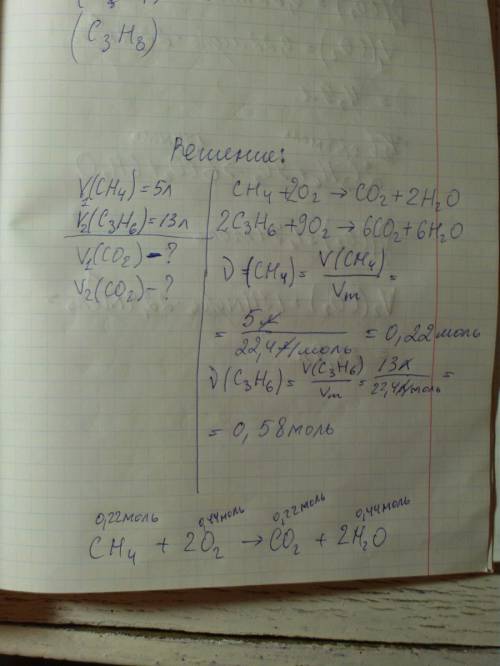 (C₃H₈)
Решение:
V₁(CH₄)=5л
V₂(C₃H₆)=13л
V₁(CO₂)-?
V₂(CO₂)-?
CH₄+2O₂→CO₂+2H₂O
2C₃H₆+9O₂→6CO₂+6H₂O
ν=(CH₄)=V(CH₄)/Vm=
=5л/22,4л/моль=0,22моль
ν(C₃H₆)=V(C₃H₆)/Vm=13л/22,4л/моль=
=0,58моль
0,22моль 0,44моль 0,22моль 0,44моль
CH₄ + 2O₂ → CO₂ + 2H₂O